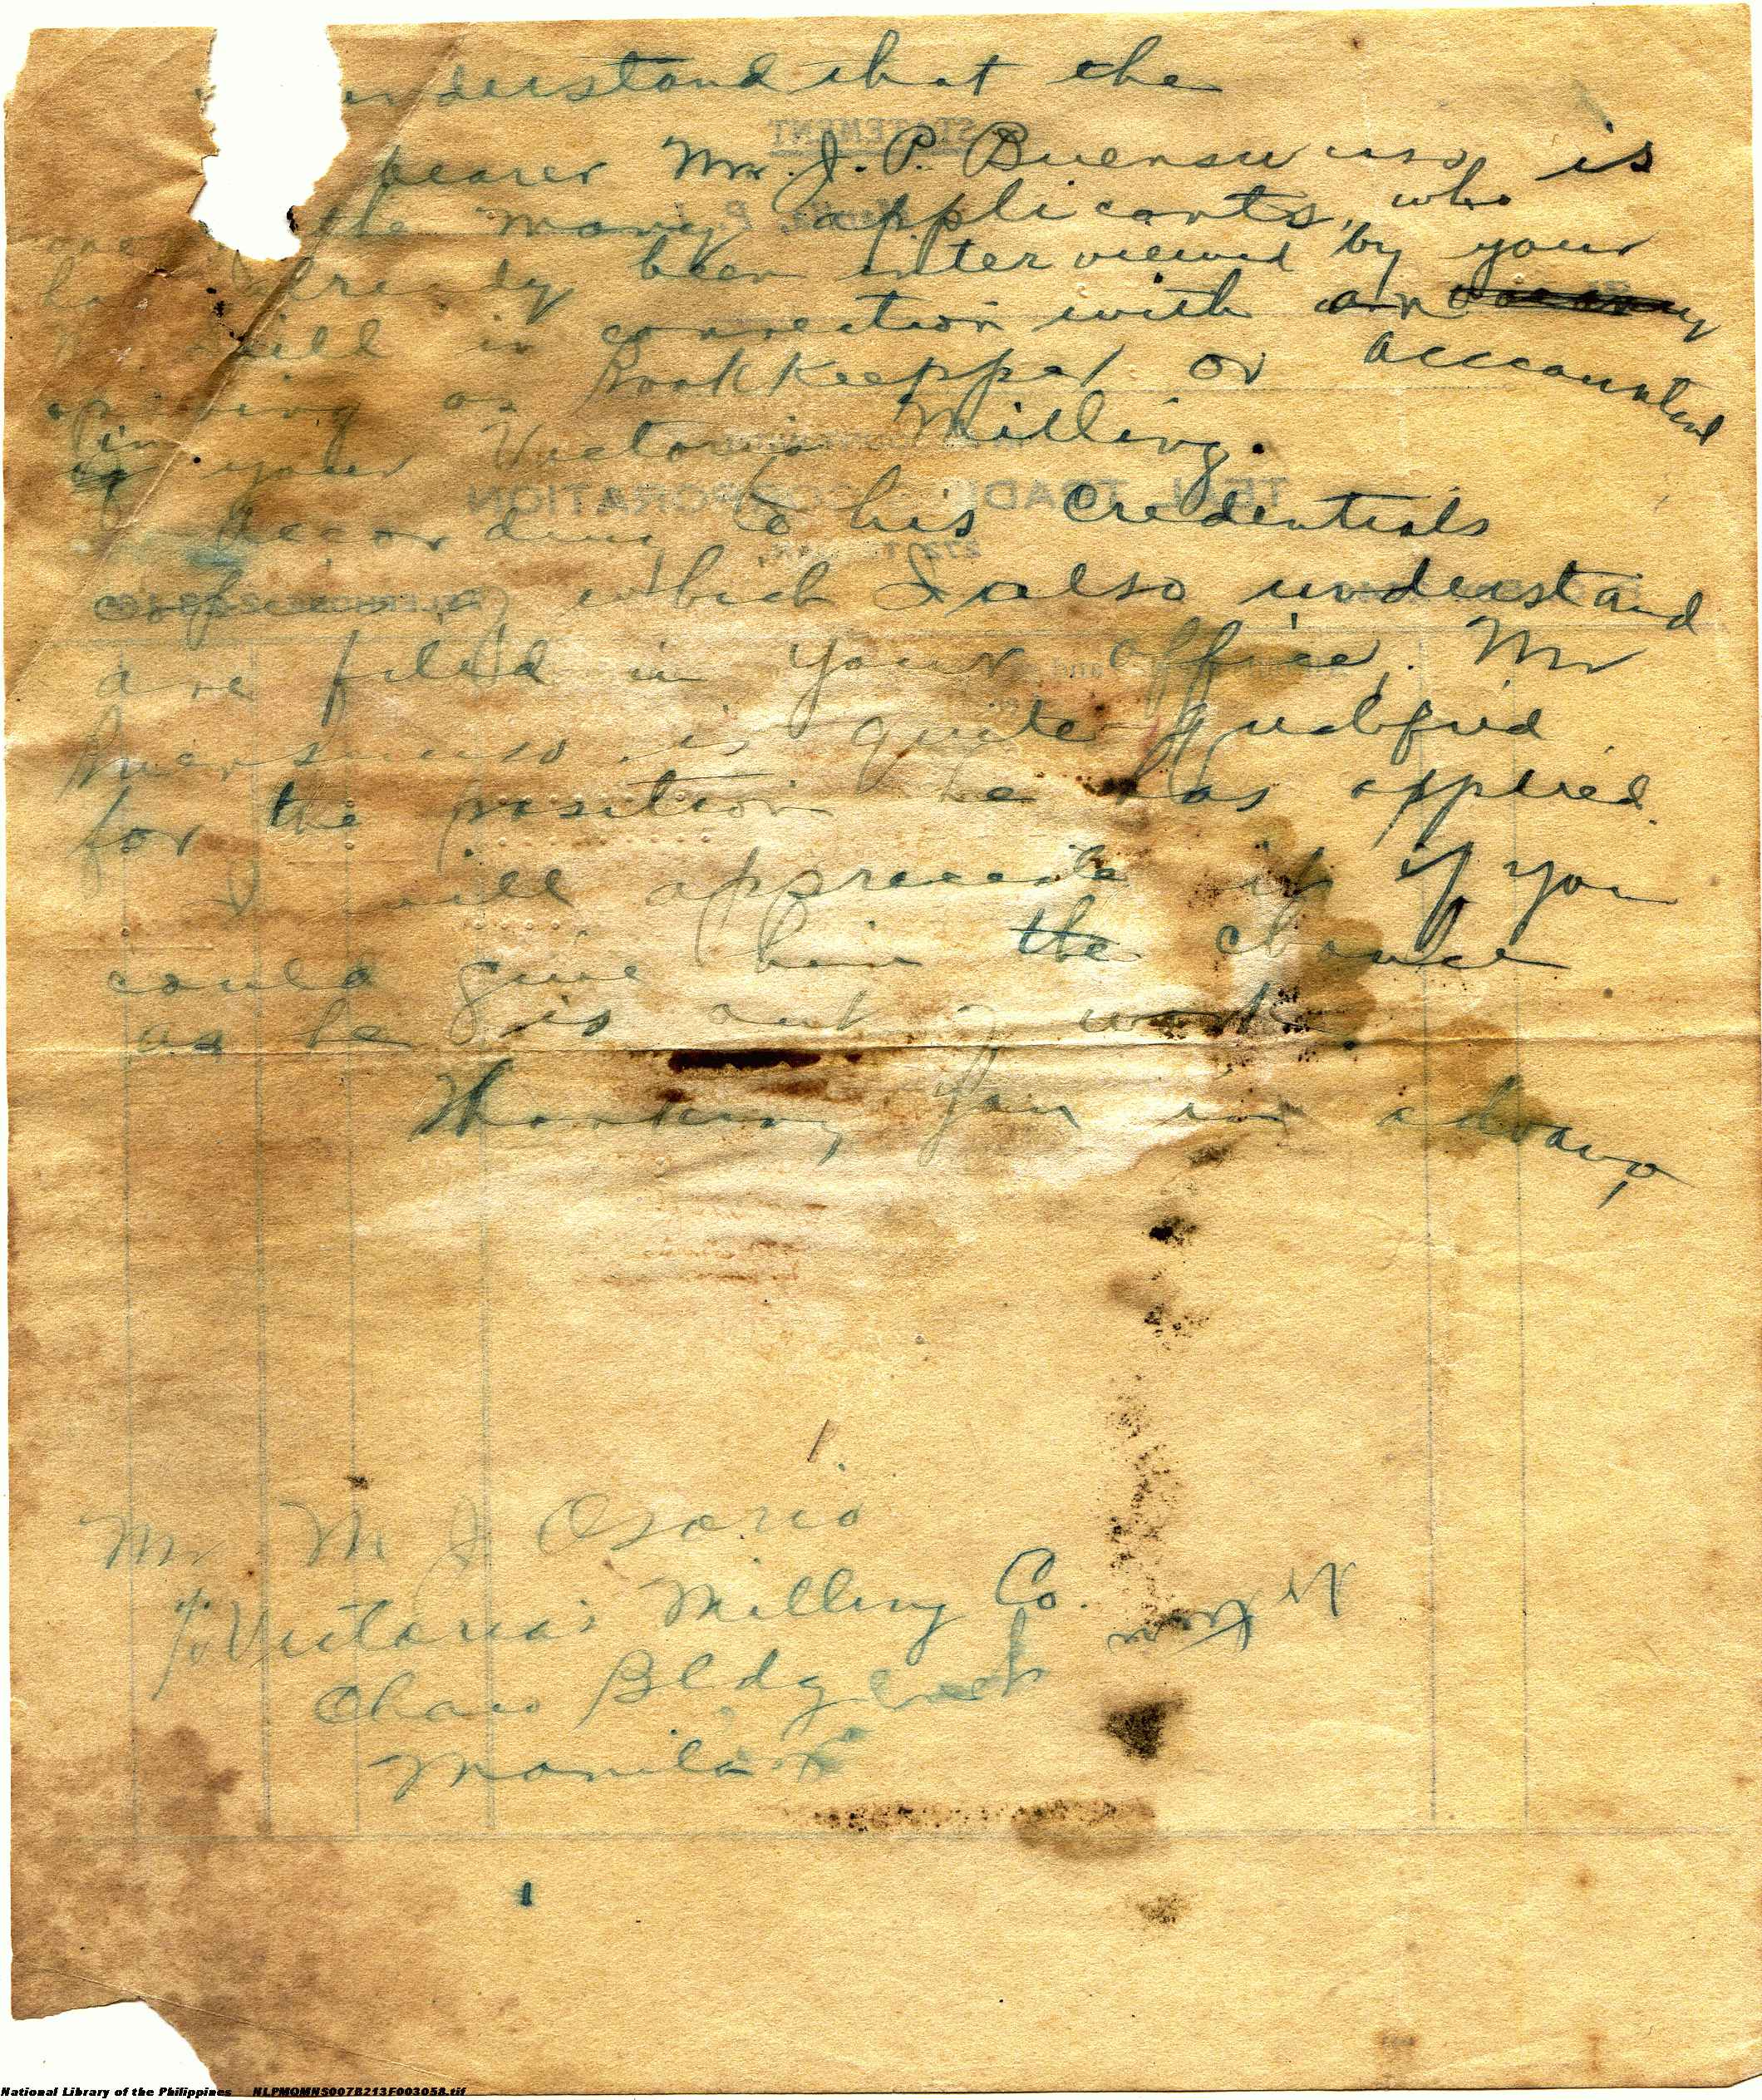 understand that the
bearer Mr. J. P. Buensuceso, is
one the many applicants, who
already been interviewed by your
in connection with an
opening as Bookkeepper or accountant
in your Victorias Milling.
According to his credentials
copy of which I also understand
are filed in your office, Mr
Buensuceso is quite qualified
for the position he has applied.
I will appreciate it if you
could give him the chance
as he is out of work.
Thanking you in advance
Mr. M J Osorio
c/o Victorias Milling Co.
Chaco Bldg
Manila
STATEMENT
TRADING CORPORATION
National Library of the Philippines NLPMQMNS007B213F003058.tif